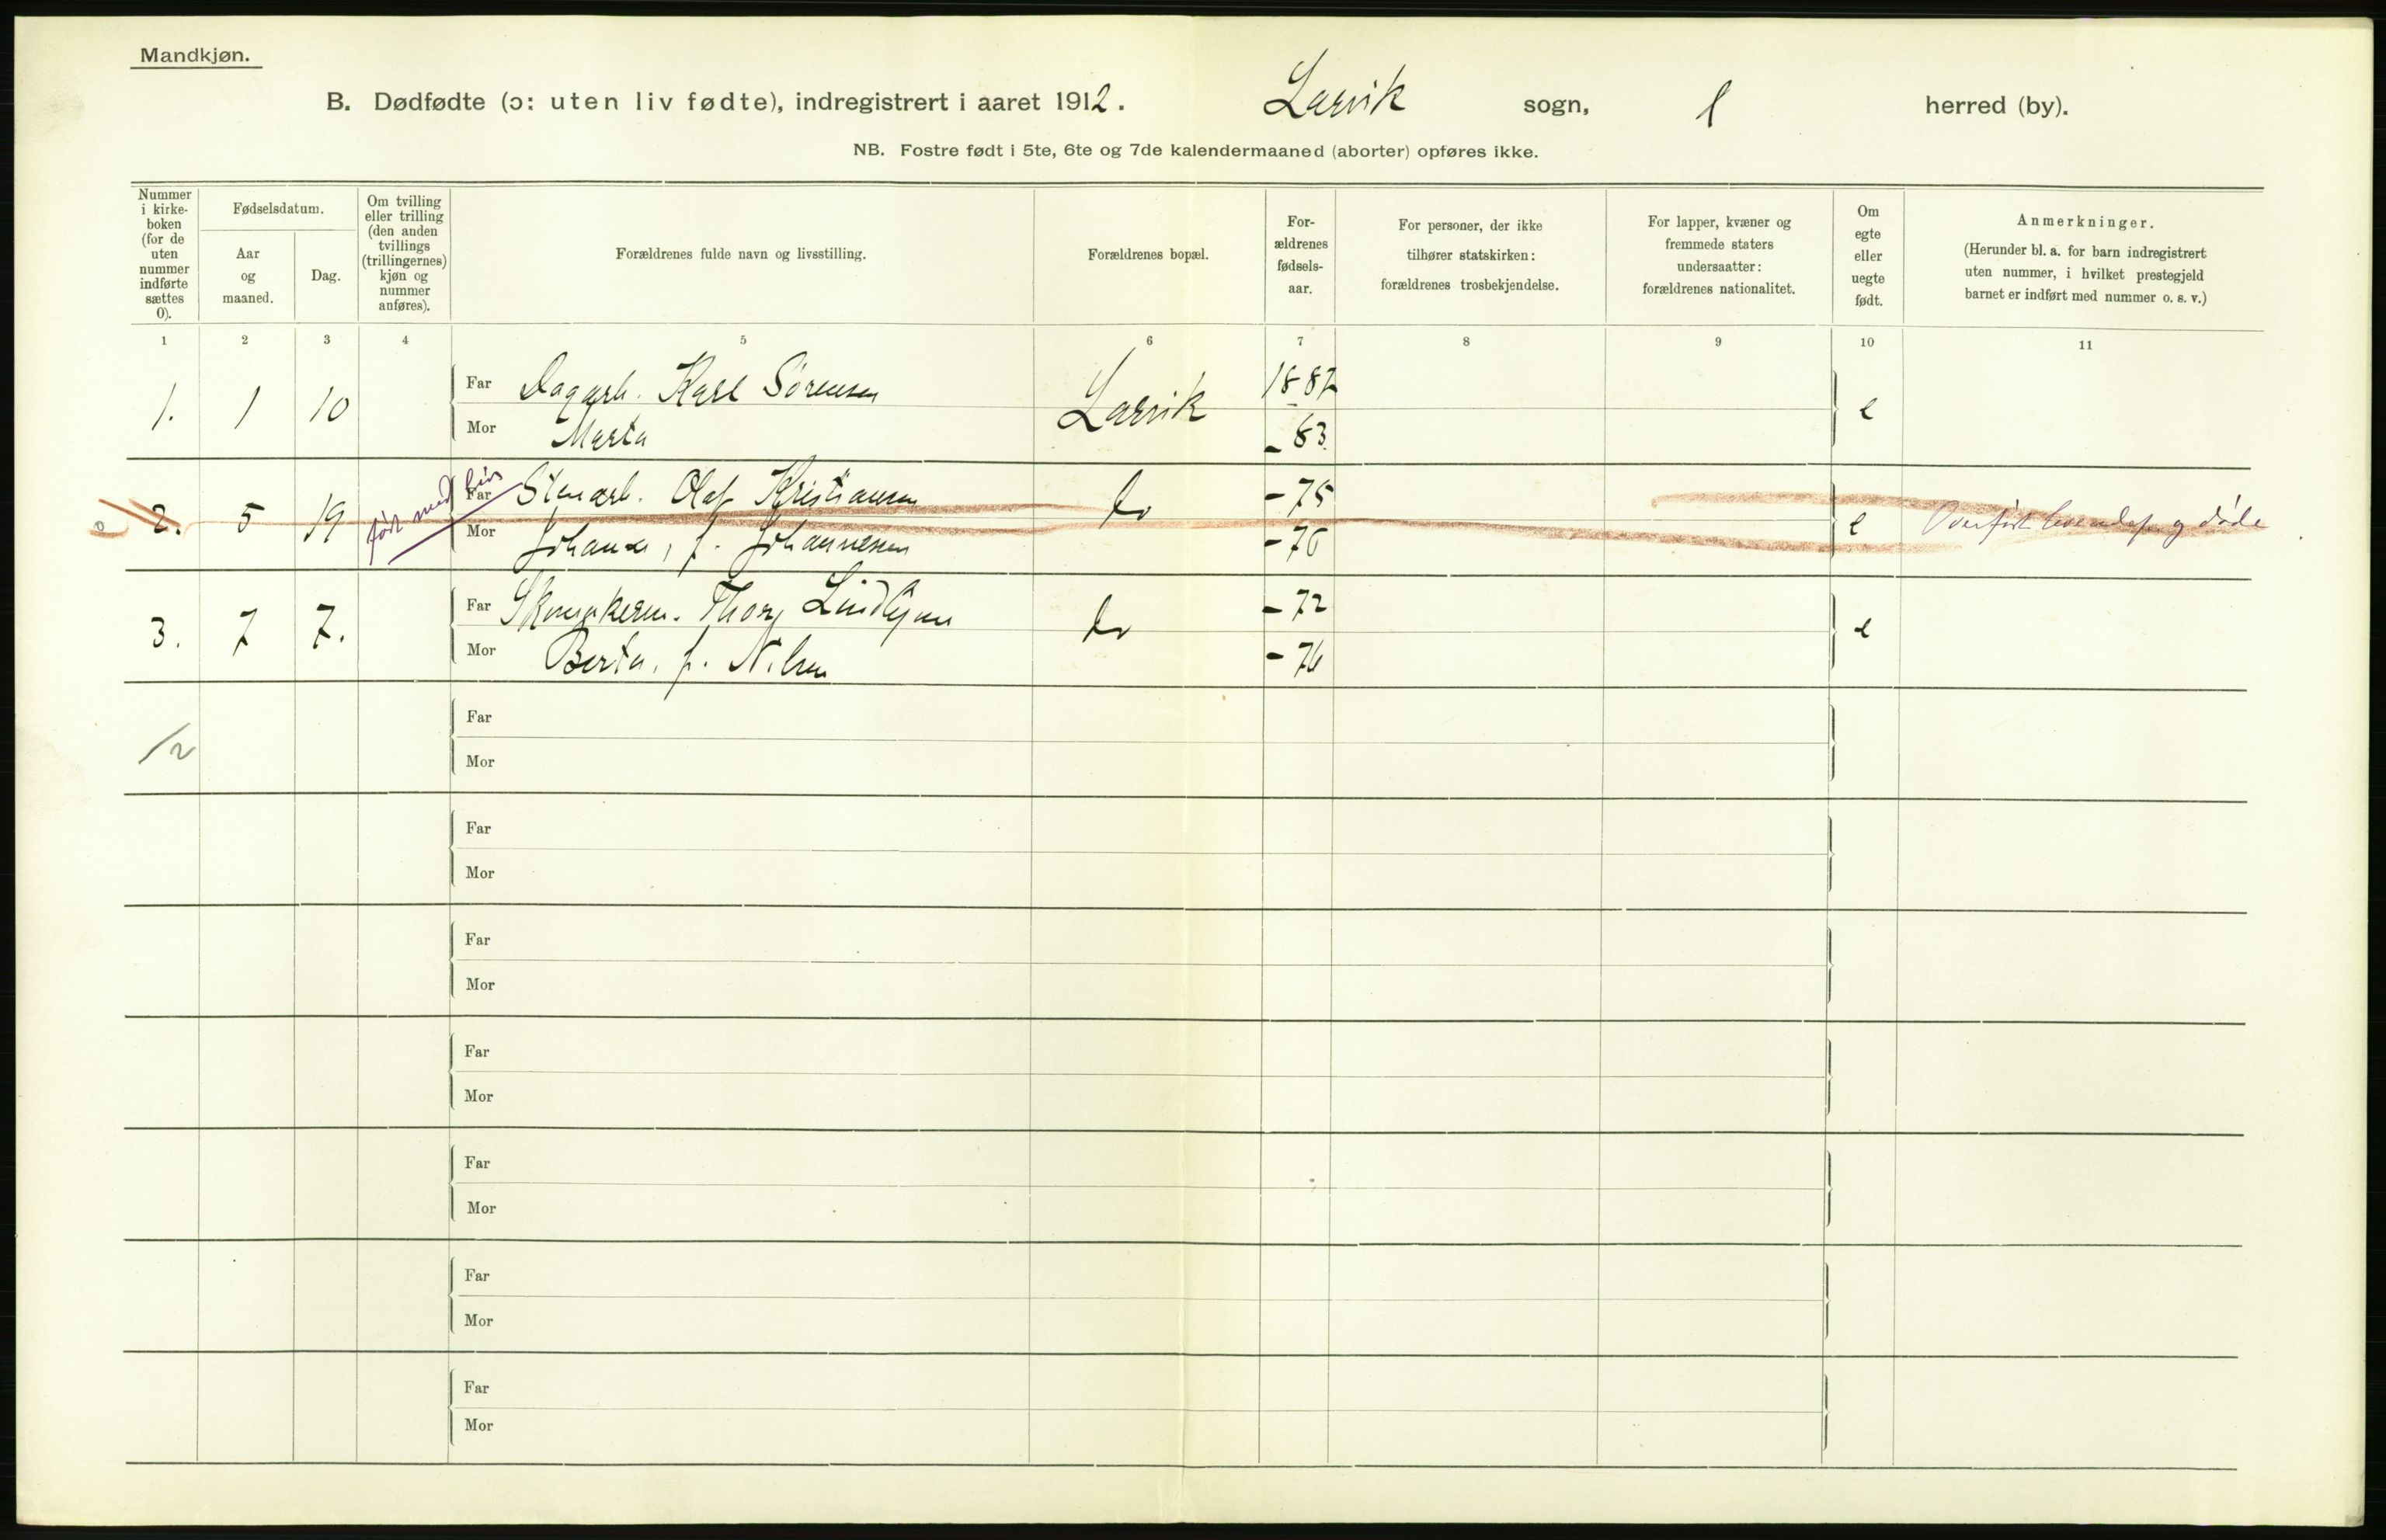 Mandkjøn.
B. Dødfødte (ɔ: uten liv fødte), indregistrert i aaret 1912. Larvik sogn, l herred (by).
NB. Fostre født i 5te, 6te og 7de kalendermaaned (aborter) opføres ikke.
Nummer
i kirke-
boken
(for de
uten
nummer
indførte
sættes
0).
Fødselsdatum.
Aar
og
maaned.
Dag.
Om tvilling
eller trilling
(den anden
tvillings
(trillingernes)
kjøn og
nummer
anføres).
Forældrenes fulde navn og livsstilling.
Forældrenes bopæl.
For-
ældrenes
fødsels-
aar.
For personer, der ikke
tilhører statskirken:
forældrenes trosbekjendelse.
For lapper, kvæner og
fremmede staters
undersaatter:
forældrenes nationalitet.
Om
egte
eller
uegte
født.
Anmerkninger.
(Herunder bl. a. for barn indregistrert
uten nummer, i hvilket prestegjeld
barnet er indført med nummer o. s. v.)
1 2 3 4 5 6 7 8 9 10 11
1. 1 10 Far Dagarb. Karl Sørensen Larvik 1887 e
Mor Marta - 83.
0 2. 5 19 født med liv Far Stenarb. Olaf Kristiansen do - 75 e Overført levendef. og døde
Mor Johanne, f. Johannesen - 76
3. 7 7. Far Thorv Lindtjørn do - 72 e
Mor Berta, f. Nilsen - 76
/2
Far
Mor
Far
Mor
Far
Mor
Far
Mor
Far
Mor
Far
Mor
Far
Mor